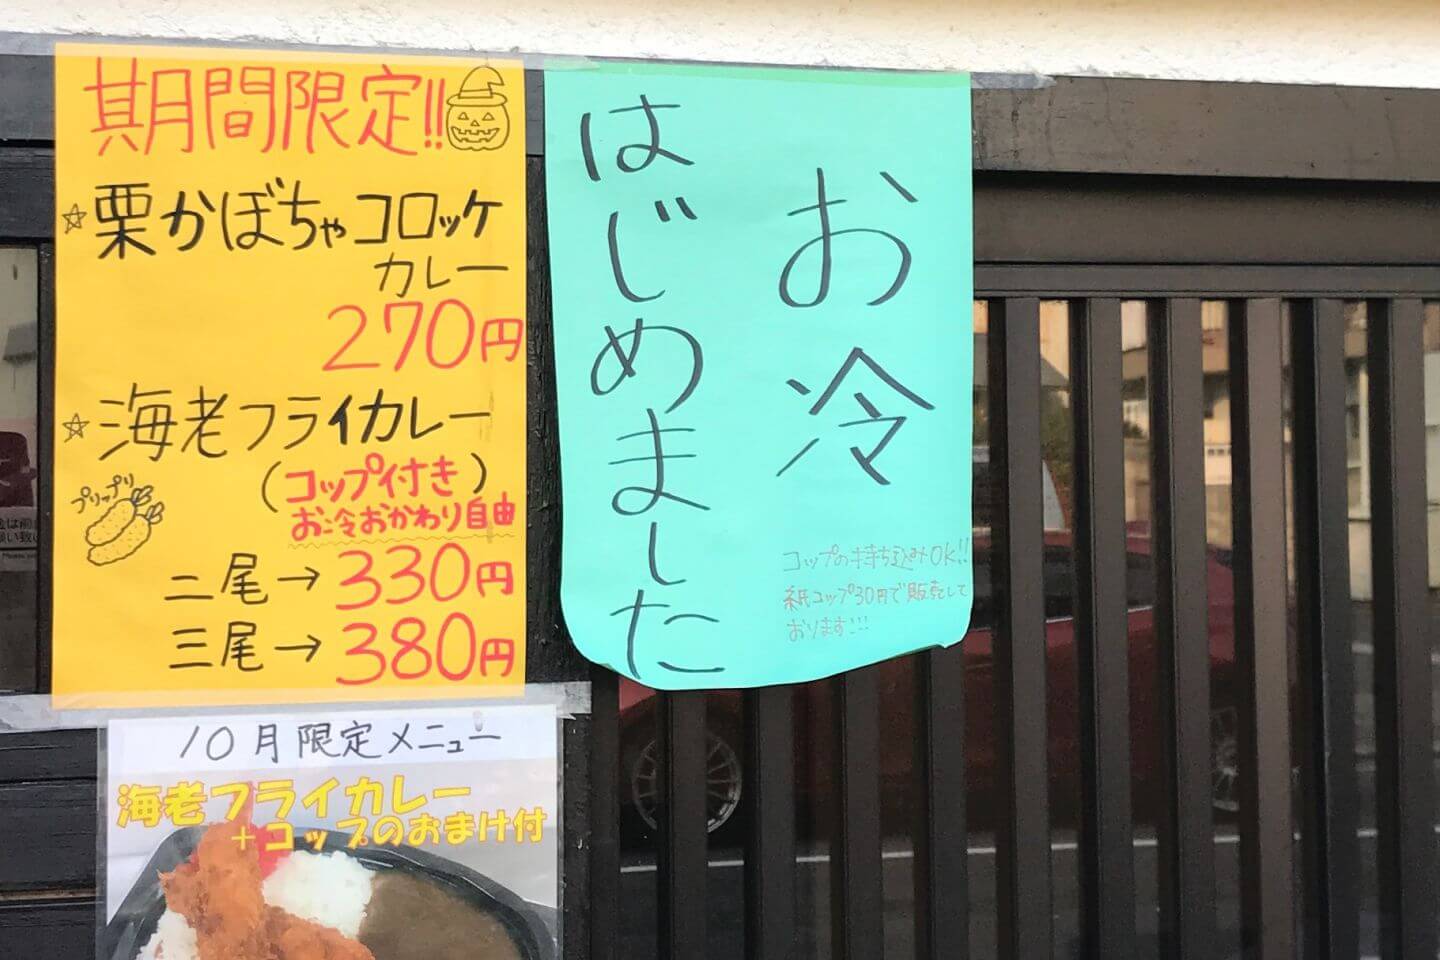 期間限定!!
☆栗かぼちゃコロッケ
カレー
270円
☆海老フライカレー
(コップ付き)
お冷おかわり自由
プリップリ
二尾→330円
三尾→380円
お冷
はじめました
コップの持ち込みOK!!
紙コップ30円で販売して
おります!!!
10月限定メニュー
海老フライカレー
+コップのおまけ付